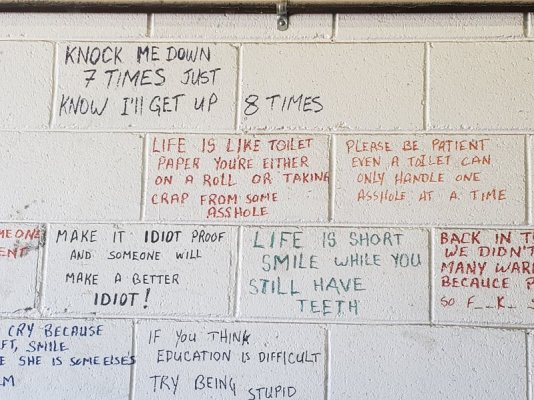 KNOCK ME DOWN
7 TIMES JUST
KNOW I'll GET UP 8 TIMES
LIFE IS LIKE TOILET
PAPER YOU'RE EITHER
ON A ROLL OR TAKING
CRAP FROM SOME
ASSHOLE
PLEASE BE PATIENT
EVEN A TOILET CAN
ONLY HANDLE ONE
ASSHOLE AT A TIME
MAKE IT IDIOT PROOF
AND SOMEONE WILL
MAKE A BETTER
IDIOT!
LIFE IS SHORT
SMILE WHILE YOU
STILL HAVE
TEETH
BACK IN
WE DIDN'T
MANY
BECAUCE
SO F__K_
CRY BECAUSE
SMILE
SHE IS SOMEELSE'S
IF YOU THINK
EDUCATION IS DIFFICULT
TRY BEING STUPID